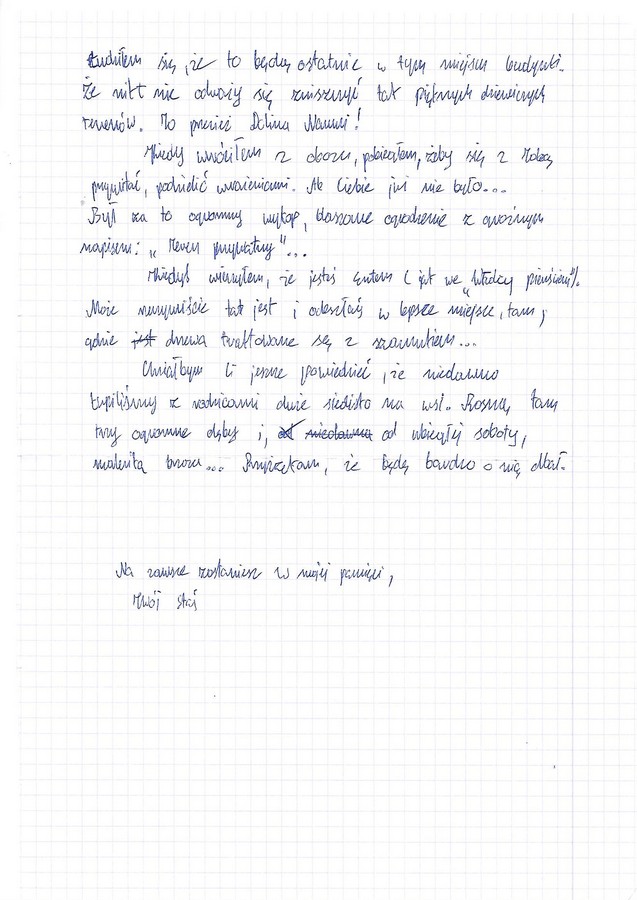 Łudziłem się, że to będą ostatnie w tym miejscu budynki.
Że nikt nie odważy się zniszczyć tak pięknych dziewiczych
terenów. To przecież Dolina Narwi!
Kiedy wróciłem z obozu, pobiegłem, żeby się z Tobą
przywitać, podzielić wrażeniami. Ale Ciebie już nie było...
Był za to ogromny wykop, blaszane ogrodzenie z groźnym
napisem: "Teren prywatny"...
Kiedyś wierzyłem, że jesteś entem (jak we "Władcy pierścieni").
Może rzeczywiście tak jest i odeszłaś w lepsze miejsce, tam,
gdzie jest drzewa traktowane się z szacunkiem...
Chciałbym Ci jeszcze powiedzieć, że niedawno
kupiliśmy z rodzicami duże siedlisko na wsi. Rosną tam
trzy ogromne dęby i, od niedawna od ubiegłej soboty,
maleńka brzoza... Przyrzekam, że będę bardzo o nią dbał.
Na zawsze zostaniesz w mojej pamięci,
Twój Staś